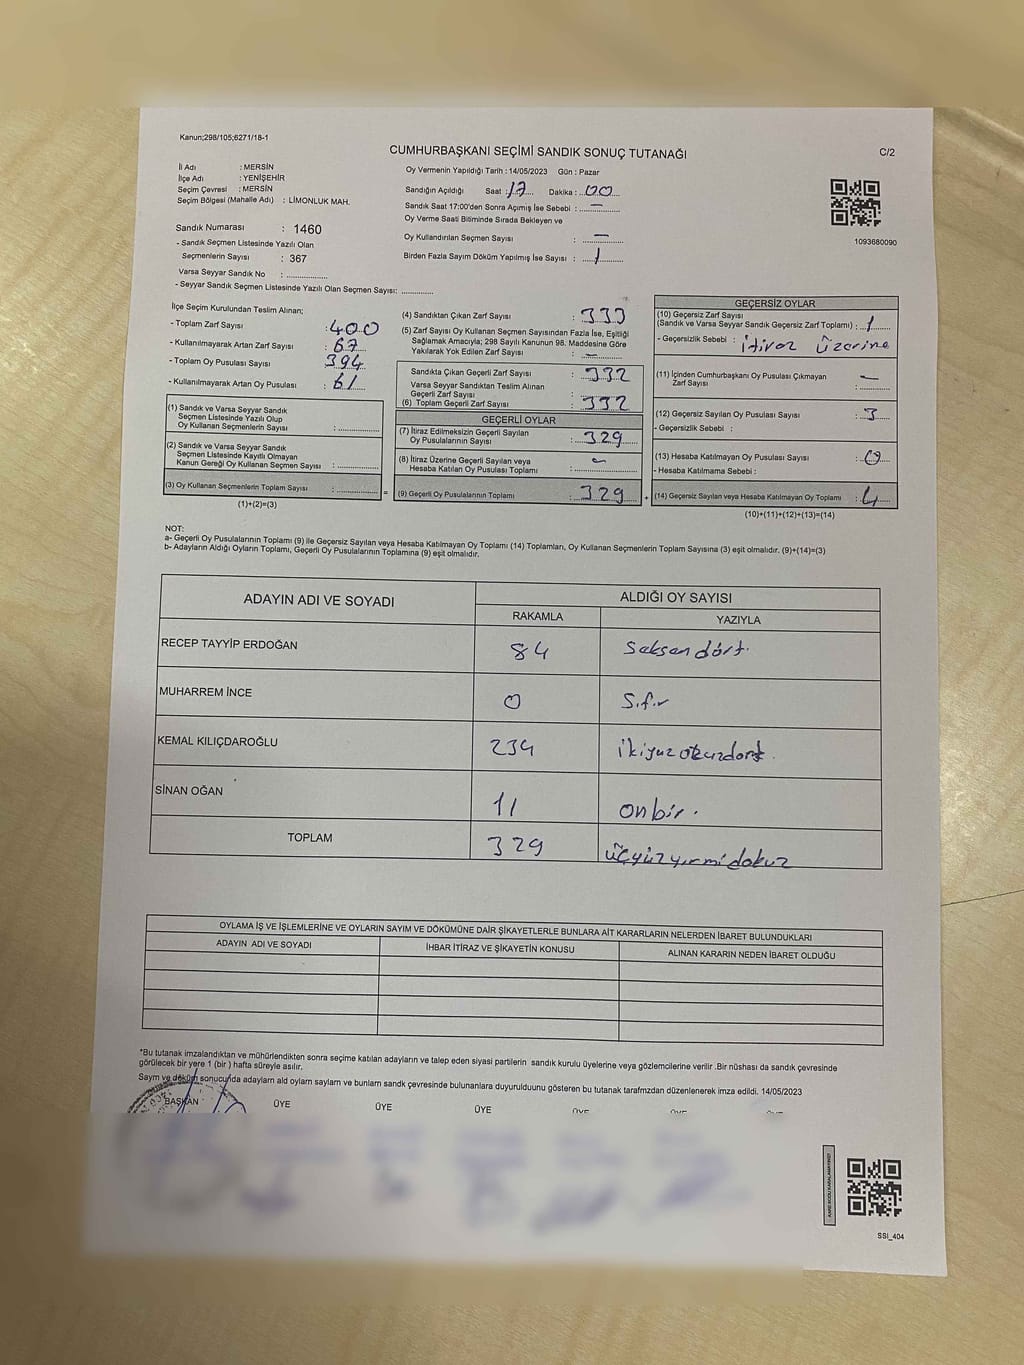 Kanun;298/105;6271/18-1
CUMHURBAŞKANI SEÇİMİ SANDIK SONUÇ TUTANAĞI
C/2
İl Adı : MERSİN
İlçe Adı : YENİŞEHİR
Seçim Çevresi : MERSİN
Seçim Bölgesi (Mahalle Adı) : LİMONLUK MAH.
Sandık Numarası : 1460
- Sandık Seçmen Listesinde Yazılı Olan
Seçmenlerin Sayısı : 367
Varsa Seyyar Sandık No :
- Seyyar Sandık Seçmen Listesinde Yazılı Olan Seçmen Sayısı:
Oy Vermenin Yapıldığı Tarih : 14/05/2023 Gün : Pazar
Sandığın Açıldığı Saat : 17 Dakika : 00
Sandık Saat 17:00'den Sonra Açılmış İse Sebebi : —
Oy Verme Saati Bitiminde Sırada Bekleyen ve
Oy Kullandırılan Seçmen Sayısı : —
Birden Fazla Sayım Döküm Yapılmış İse Sayısı : 1
1093680090
İlçe Seçim Kurulundan Teslim Alınan;
- Toplam Zarf Sayısı : 400
- Kullanılmayarak Artan Zarf Sayısı : 67
- Toplam Oy Pusulası Sayısı : 394
- Kullanılmayarak Artan Oy Pusulası : 61
(1) Sandık ve Varsa Seyyar Sandık
Seçmen Listesinde Yazılı Olup
Oy Kullanan Seçmenlerin Sayısı :
(2) Sandık ve Varsa Seyyar Sandık
Seçmen Listesinde Kayıtlı Olmayan
Kanun Gereği Oy Kullanan Seçmen Sayısı :
(3) Oy Kullanan Seçmenlerin Toplam Sayısı : =
(1)+(2)=(3)
(4) Sandıktan Çıkan Zarf Sayısı : 333
(5) Zarf Sayısı Oy Kullanan Seçmen Sayısından Fazla İse, Eşitliği
Sağlamak Amacıyla; 298 Sayılı Kanunun 98. Maddesine Göre
Yakılarak Yok Edilen Zarf Sayısı : —
Sandıkta Çıkan Geçerli Zarf Sayısı : 332
Varsa Seyyar Sandıktan Teslim Alınan
Geçerli Zarf Sayısı :
(6) Toplam Geçerli Zarf Sayısı : 332
GEÇERLİ OYLAR
(7) İtiraz Edilmeksizin Geçerli Sayılan
Oy Pusulalarının Sayısı : 329
(8) İtiraz Üzerine Geçerli Sayılan veya
Hesaba Katılan Oy Pusulası Toplamı : —
(9) Geçerli Oy Pusulalarının Toplamı : 329 +
GEÇERSİZ OYLAR
(10) Geçersiz Zarf Sayısı
(Sandık ve Varsa Seyyar Sandık Geçersiz Zarf Toplamı) : 1
- Geçersizlik Sebebi : itiraz üzerine
(11) İçinden Cumhurbaşkanı Oy Pusulası Çıkmayan
Zarf Sayısı : —
(12) Geçersiz Sayılan Oy Pusulası Sayısı : 3
- Geçersizlik Sebebi :
(13) Hesaba Katılmayan Oy Pusulası Sayısı : 0
- Hesaba Katılmama Sebebi :
(14) Geçersiz Sayılan veya Hesaba Katılmayan Oy Toplamı : 4
(10)+(11)+(12)+(13)=(14)
NOT:
a- Geçerli Oy Pusulalarının Toplamı (9) ile Geçersiz Sayılan veya Hesaba Katılmayan Oy Toplamı (14) Toplamları, Oy Kullanan Seçmenlerin Toplam Sayısına (3) eşit olmalıdır. (9)+(14)=(3)
b- Adayların Aldığı Oyların Toplamı, Geçerli Oy Pusulalarının Toplamına (9) eşit olmalıdır.
ADAYIN ADI VE SOYADI
ALDIĞI OY SAYISI
RAKAMLA YAZIYLA
RECEP TAYYİP ERDOĞAN 84 Seksen dört.
MUHARREM İNCE 0 Sıfır
KEMAL KILIÇDAROĞLU 234 ikiyuz otuzdort.
SİNAN OĞAN 11 onbir.
TOPLAM 329 üçyüzyirmidokuz
OYLAMA İŞ VE İŞLEMLERİNE VE OYLARIN SAYIM VE DÖKÜMÜNE DAİR ŞİKAYETLERLE BUNLARA AİT KARARLARIN NELERDEN İBARET BULUNDUKLARI
ADAYIN ADI VE SOYADI İHBAR İTİRAZ VE ŞİKAYETİN KONUSU ALINAN KARARIN NEDEN İBARET OLDUĞU
*Bu tutanak imzalandıktan ve mühürlendikten sonra seçime katılan adayların ve talep eden siyasi partilerin sandık kurulu üyelerine veya gözlemcilerine verilir .Bir nüshası da sandık çevresinde
görülecek bir yere 1 (bir ) hafta süreyle asılır.
Sayım ve döküm sonucunda adayların ald oyların sayılarn ve bunların sandk çevresinde bulunanlara duyurulduunu gösteren bu tutanak tarafmzdan düzenlenerek imza edildi. 14/05/2023
BAŞKAN ÜYE ÜYE ÜYE
SSI_404